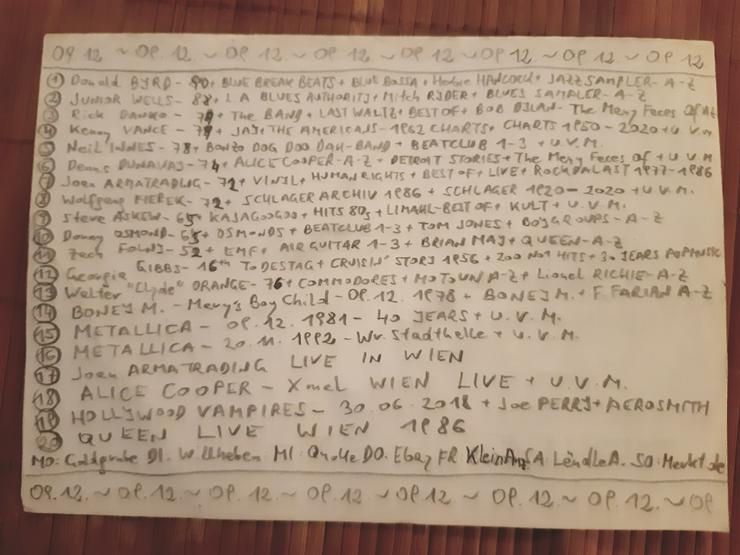 09.12. ~ 09.12. ~ 09.12. ~ 09.12. ~ 09.12. ~ 09.12 ~ 09.12. ~ 09.12
① Donald BYRD - 90 + BLUE BREAK BEATS + BLUE BOSSA + Herbie HANCOCK + JAZZ SAMPLER - A-Z
② JUNIOR WELLS - 88 + L.A BLUES AUTHORITY + Mitch RYDER + BLUES SAMPLER - A-Z
③ Rick DANKO - 79 + The BAND + LAST WALTZ + BEST OF + BOB DYLAN - The Many Faces Of AZ
④ Kenny VANCE - 79 + JAY + THE AMERICANS - 1962 CHARTS + CHARTS 1950 - 2020 + U.V.M
⑤ Neil INNES - 78 + BONZO DOG DOO DAH-BAND + BEATCLUB 1-3 + U.V.M.
⑥ Dennis DUNAWAY - 74 + ALICE COOPER - A-Z + DETROIT STORIES + The Many Faces Of + U.V.M
⑦ Joan ARMATRADING - 72 + VINYL + HUMAN RIGHTS + BEST OF + LIVE + ROCKPALAST 1977-1986
⑧ Wolfgang FIEREK - 72 + SCHLAGER ARCHIV 1986 + SCHLAGER 1920 - 2020 + U.V.M.
⑨ Steve ASKEW - 65 + KAJAGOOGOO + HITS 80s + LIMAHL - BEST OF + KULT + U.V.M.
⑩ Donny OSMOND - 65 + OSMONDS + BEATCLUB 1-3 + TOM JONES + BOYGROUPS - A-Z
⑪ Zech FOLEY - 52 + EMF + AIR GUITAR 1-3 + BRIAN MAY + QUEEN - A-Z
⑫ Georgia GIBBS - 16th TODESTAG + CRUISIN' STORY 1956 + 200 NO1 HITS + 30 YEARS POPMUSIC
⑬ Walter "Clyde" ORANGE - 76 + COMMODORES + MOTOWN A-Z + Lionel RICHIE - A-Z
⑭ BONEY M. - Mary's Boy Child - 09.12. 1978 + BONEY M. + F. FARIAN A-Z
⑮ METALLICA - 09.12. 1981 - 40 YEARS + U.V.M.
⑯ METALLICA - 20.11. 1992 - Wr. Stadthalle + U.V.M.
⑰ Joan ARMATRADING LIVE IN WIEN
⑱ ALICE COOPER - Xmal WIEN LIVE + U.V.M.
⑲ HOLLYWOOD VAMPIRES - 30.06.2018 + Joe PERRY + AEROSMITH
⑳ QUEEN LIVE WIEN 1986
MO: Goldgrube DI. Willhaben MI: Quoke DO. Ebay FR Klein Anz SA LändleA. SO. Markt.de
09.12. ~ 09.12. ~ 09.12. ~ 09.12. ~ 09.12. ~ 09.12. ~ 09.12. ~ 09